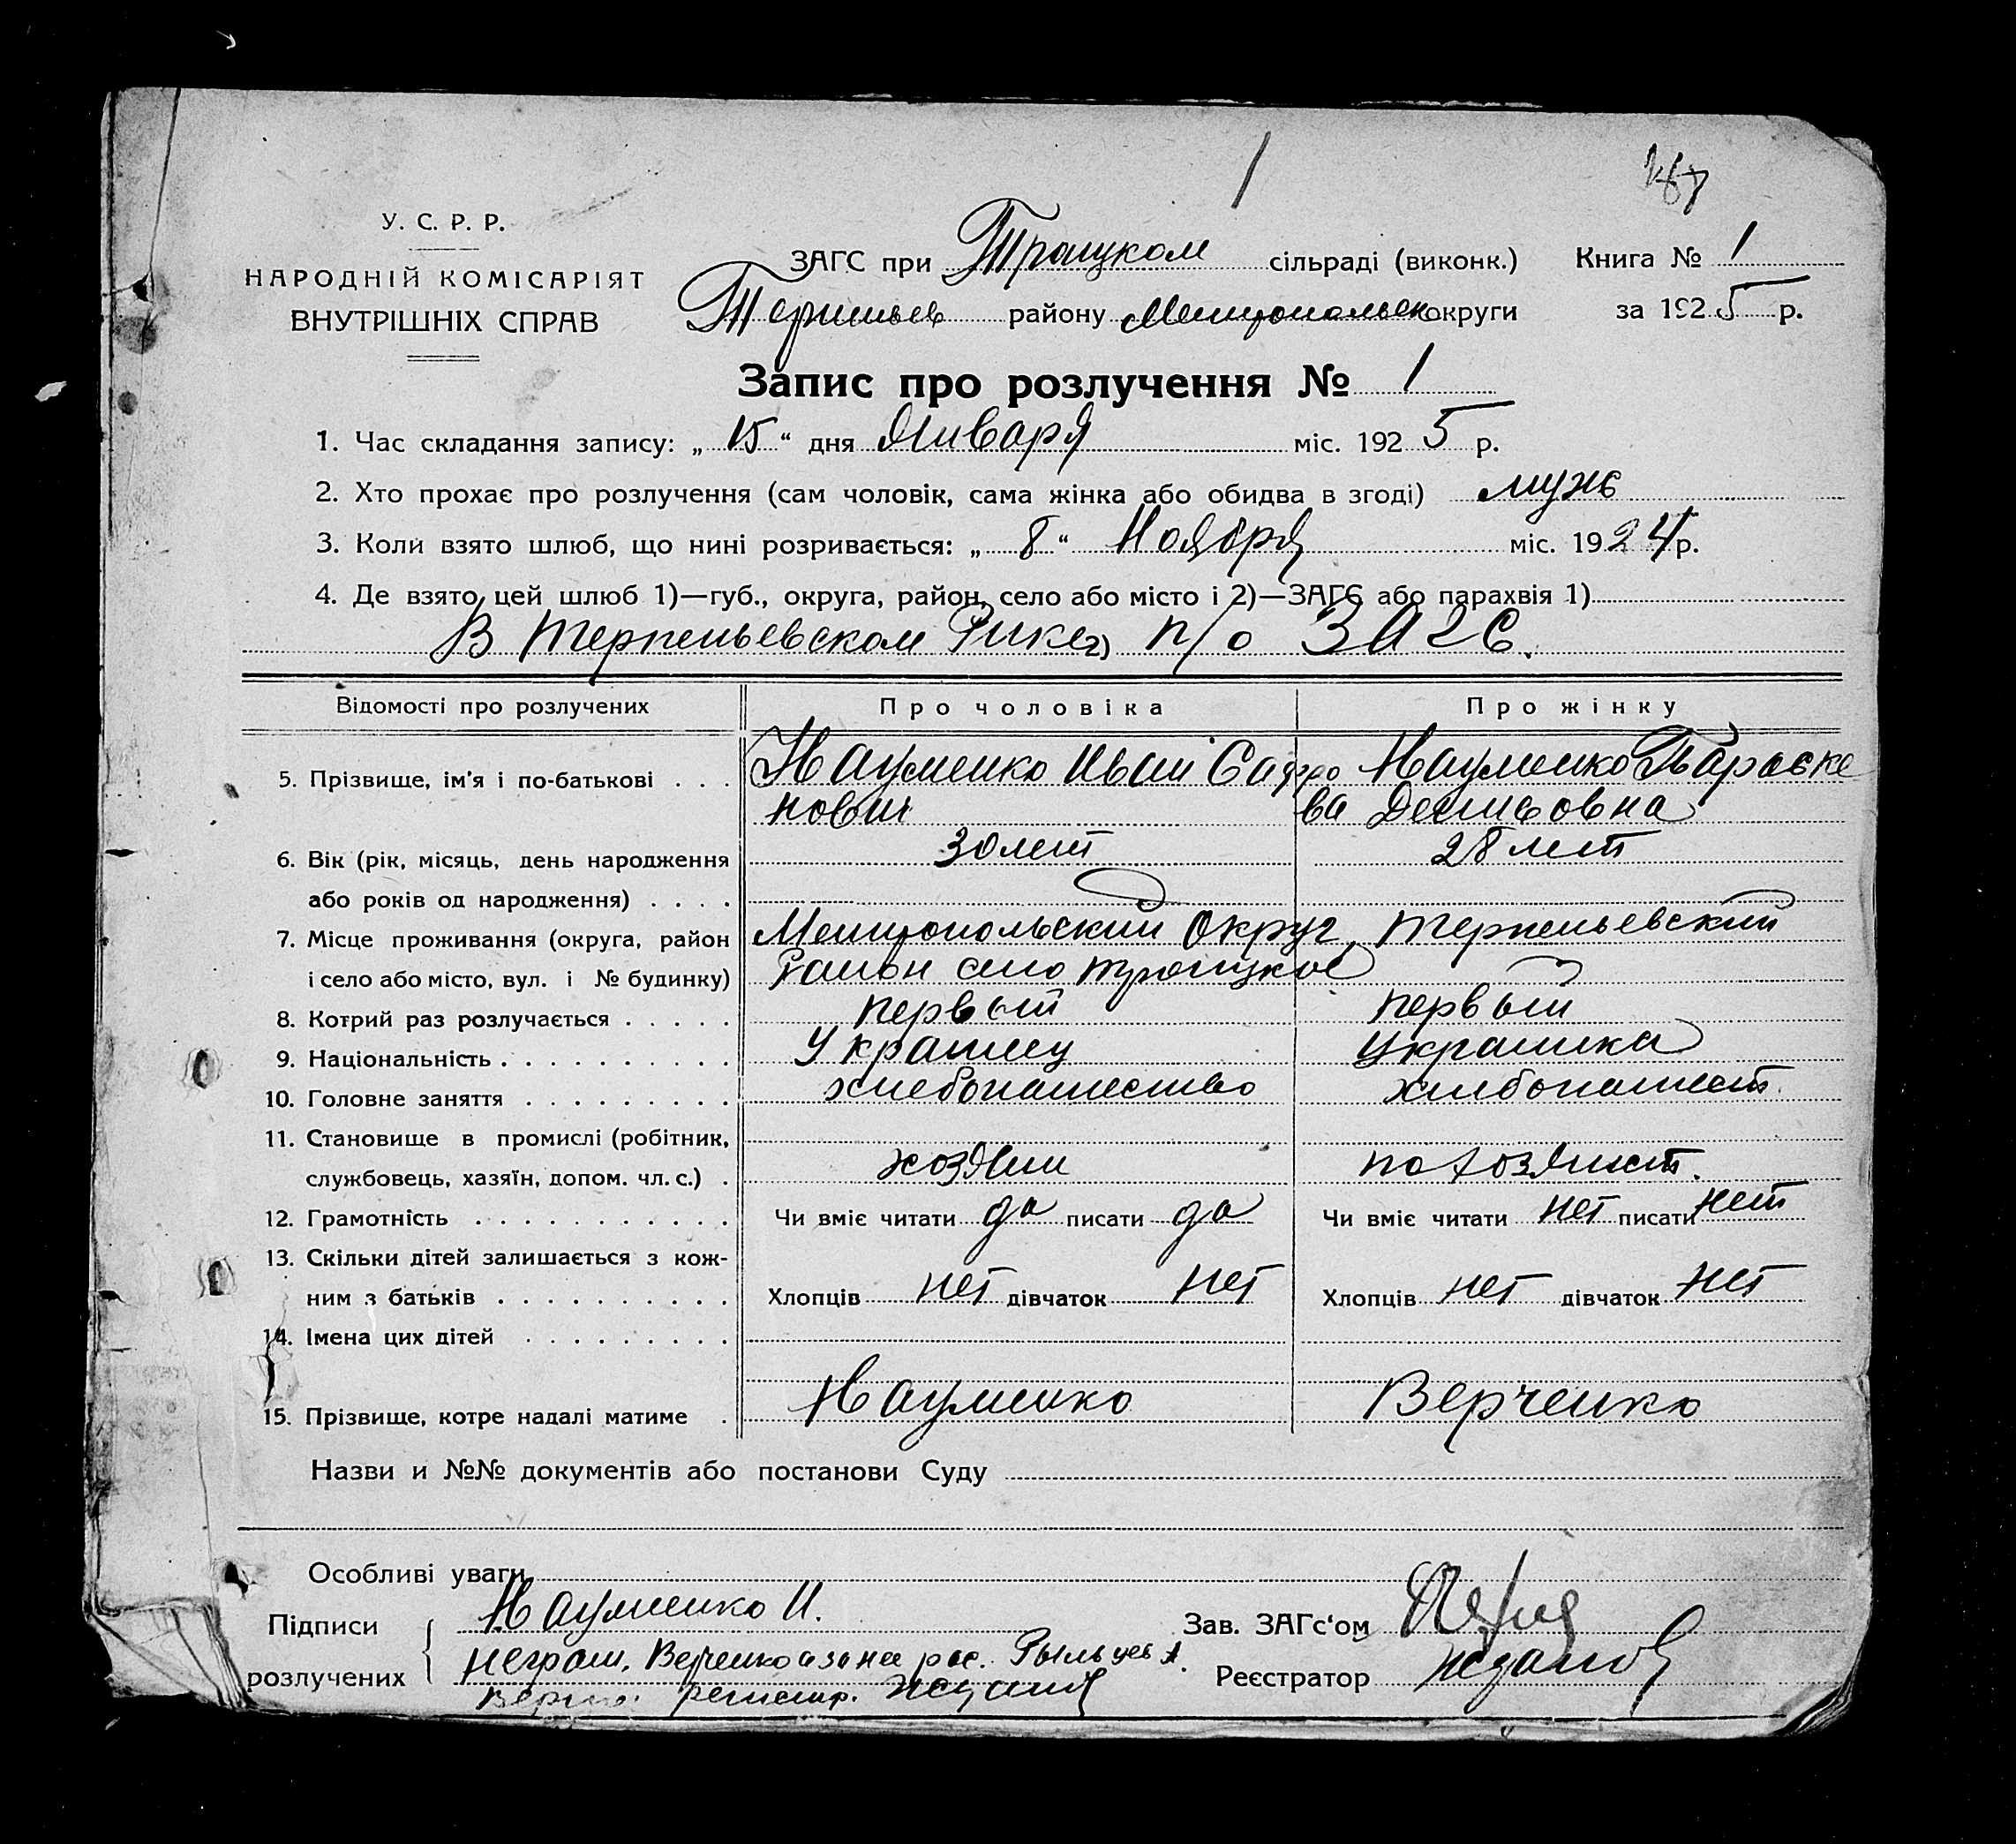 1
У. С. Р. Р.
НАРОДНІЙ КОМІСАРІЯТ
ВНУТРІШНІХ СПРАВ
ЗАГС при Троицком сільраді (виконк.) Книга № 1
району Мелитопольск округи за 1925 р.
Запис про розлучення № 1
1. Час складання запису: „ 15 “ дня Января міс. 1925 р.
2. Хто прохає про розлучення (сам чоловік, сама жінка або обидва в згоді) муж
3. Коли взято шлюб, що нині розривається: „ 8 “ Ноября міс. 1924 р.
4. Де взято цей шлюб 1)—губ., округа, район, село або місто і 2)—ЗАГС або парахвія 1)
В Терпеньевском Рике 2) п/о ЗАГС.
Відомості про розлучених Про чоловіка Про жінку
5. Прізвище, ім'я і по-батькові . . . Науменко Иван Сафро Науменко Параске
нович ва Денисовна
6. Вік (рік, місяць, день народження 30 лет 28 лет
або років од народження) . . . .
7. Місце проживання (округа, район Мелитопольский Округ, Терпеньевский
і село або місто, вул. і № будинку) Район село Троицкое
8. Котрий раз розлучається . . . . . первый первый
9. Національність . . . . . . . . . . Украинец Украинка
10. Головне заняття . . . . . . . . . хлебопашество хлебопашест.
11. Становище в промислі (робітник,
службовець, хазяїн, допом. чл. с.) . хозяин по хозяйст.
12. Грамотність . . . . . . . . . . . Чи вміє читати да писати да Чи вміє читати нет писати нет
13. Скільки дітей залишається з кож-
ним з батьків . . . . . . . . . . Хлопців нет дівчаток нет Хлопців нет дівчаток нет
14. Імена цих дітей . . . . . . . . .
15. Прізвище, котре надалі матиме . Науменко Верченко
Назви и №№ документів або постанови Суду
Особливі уваги
Підписи Науменко И. Зав. ЗАГс‘ом
розлучених неграм. Верченко а за нее рос. Рыльцев А. Реєстратор